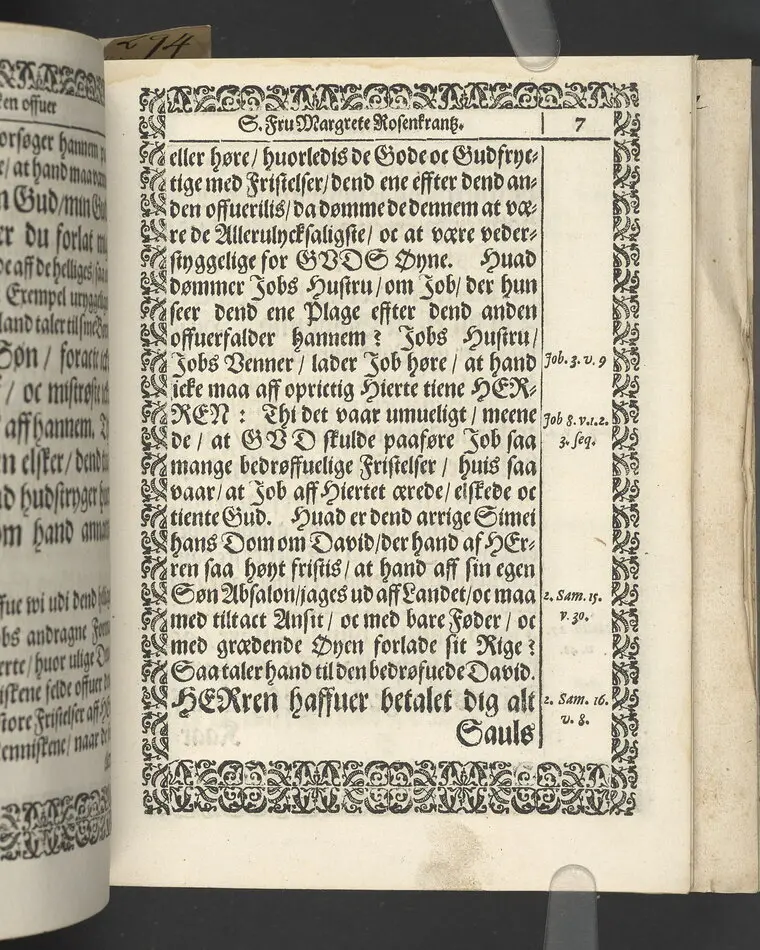 294
ken offuer
S. Fru Margrete Rosenkrantz.
7
eller høre/ huorledis de Gode oc Gudfryc-
tige med Fristelser/dend ene effter dend an-
den offuerilis/da dømme de dennem at væ-
re de Allerulycksaligste/ oc at være veder-
styggelige for GVDS Øyne. Huad
dømmer Jobs Hustru/om Job/ der hun
seer dend ene Plage effter dend anden
offuerfalder hannem? Jobs Hustru/
Jobs Venner/ lader Job høre/ at hand
icke maa aff oprictig Hierte tiene HER-
REN: Thi det vaar umueligt/ meene
de/ at GVD skulde paaføre Job saa
mange bedrøffuelige Fristelser/ huis saa
vaar/at Job aff Hiertet ærede/elskede oc
tiente Gud. Huad er dend arrige Simei
hans Dom om David/der hand af HEr-
ren saa høyt fristis/ at hand aff sin egen
Søn Absalon/jages ud aff Landet/oc maa
med tiltact Ansit/ oc med bare Føder/ oc
med grædende Øyen forlade sit Rige?
Saa taler hand til den bedrøfuede David.
HERren haffuer betalet dig alt
Sauls
Job. 3. v. 9
Job 8. v.1.2.
3. seq.
2. Sam. 15.
v. 30.
2. Sam. 16.
v. 8.